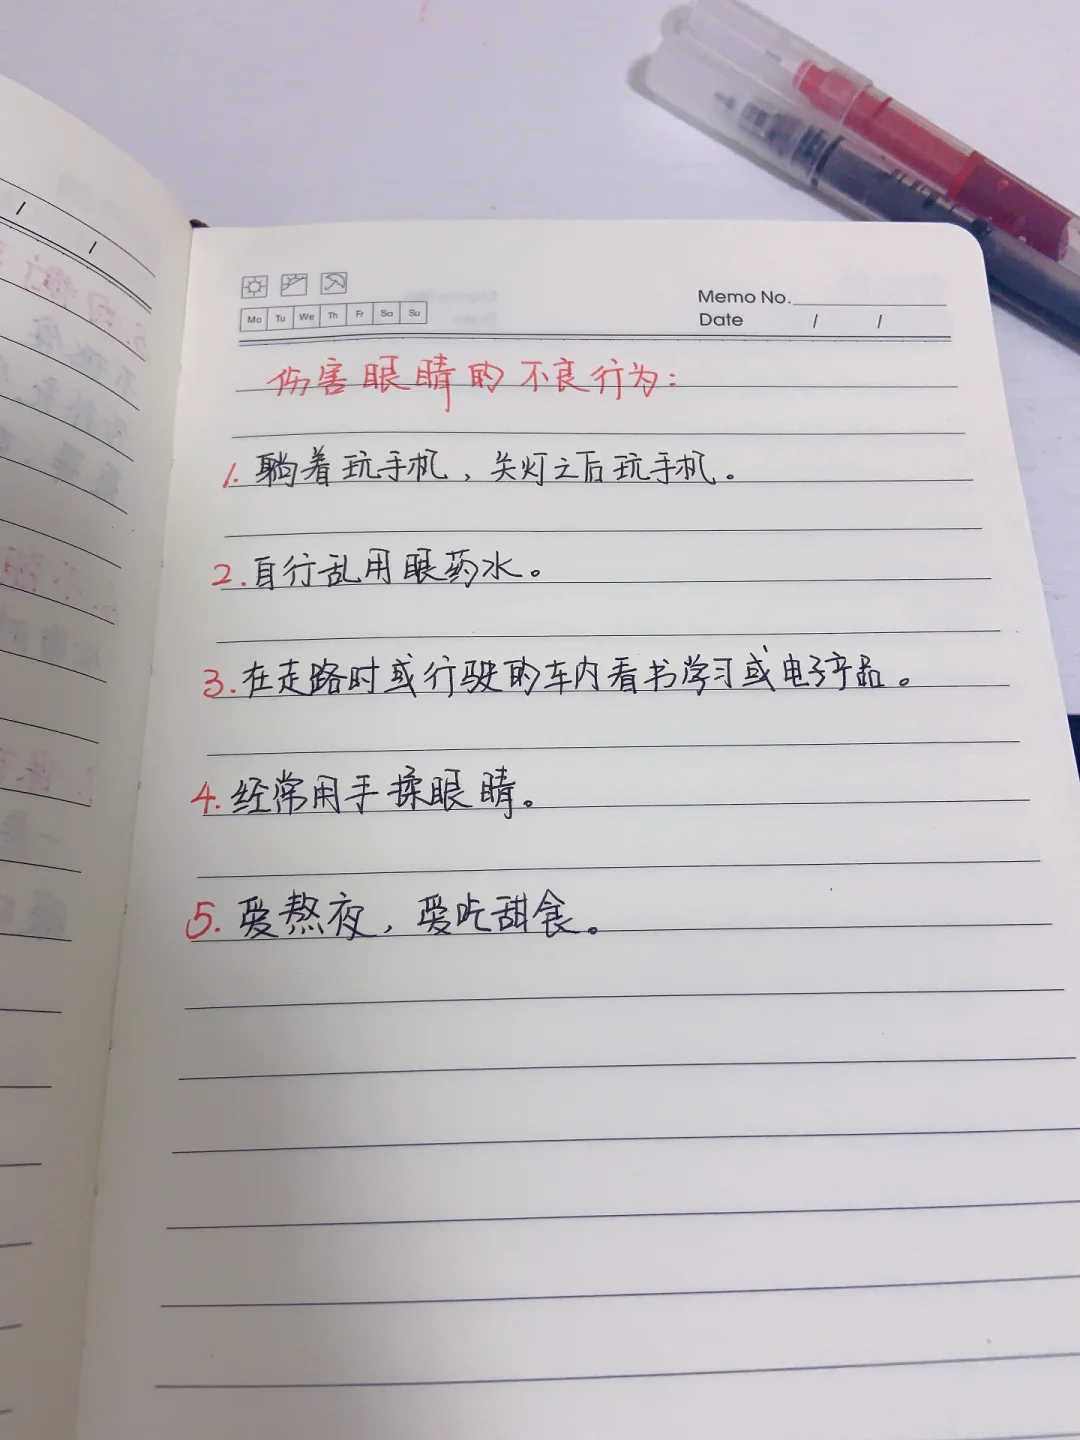 Mo Tu We Th Fr Sa Su
Memo No.
Date / /
伤害眼睛的不良行为:
1. 躺着玩手机，关灯之后玩手机。
2. 自行乱用眼药水。
3. 在走路时或行驶的车内看书学习或电子产品。
4. 经常用手揉眼睛。
5. 爱熬夜，爱吃甜食。